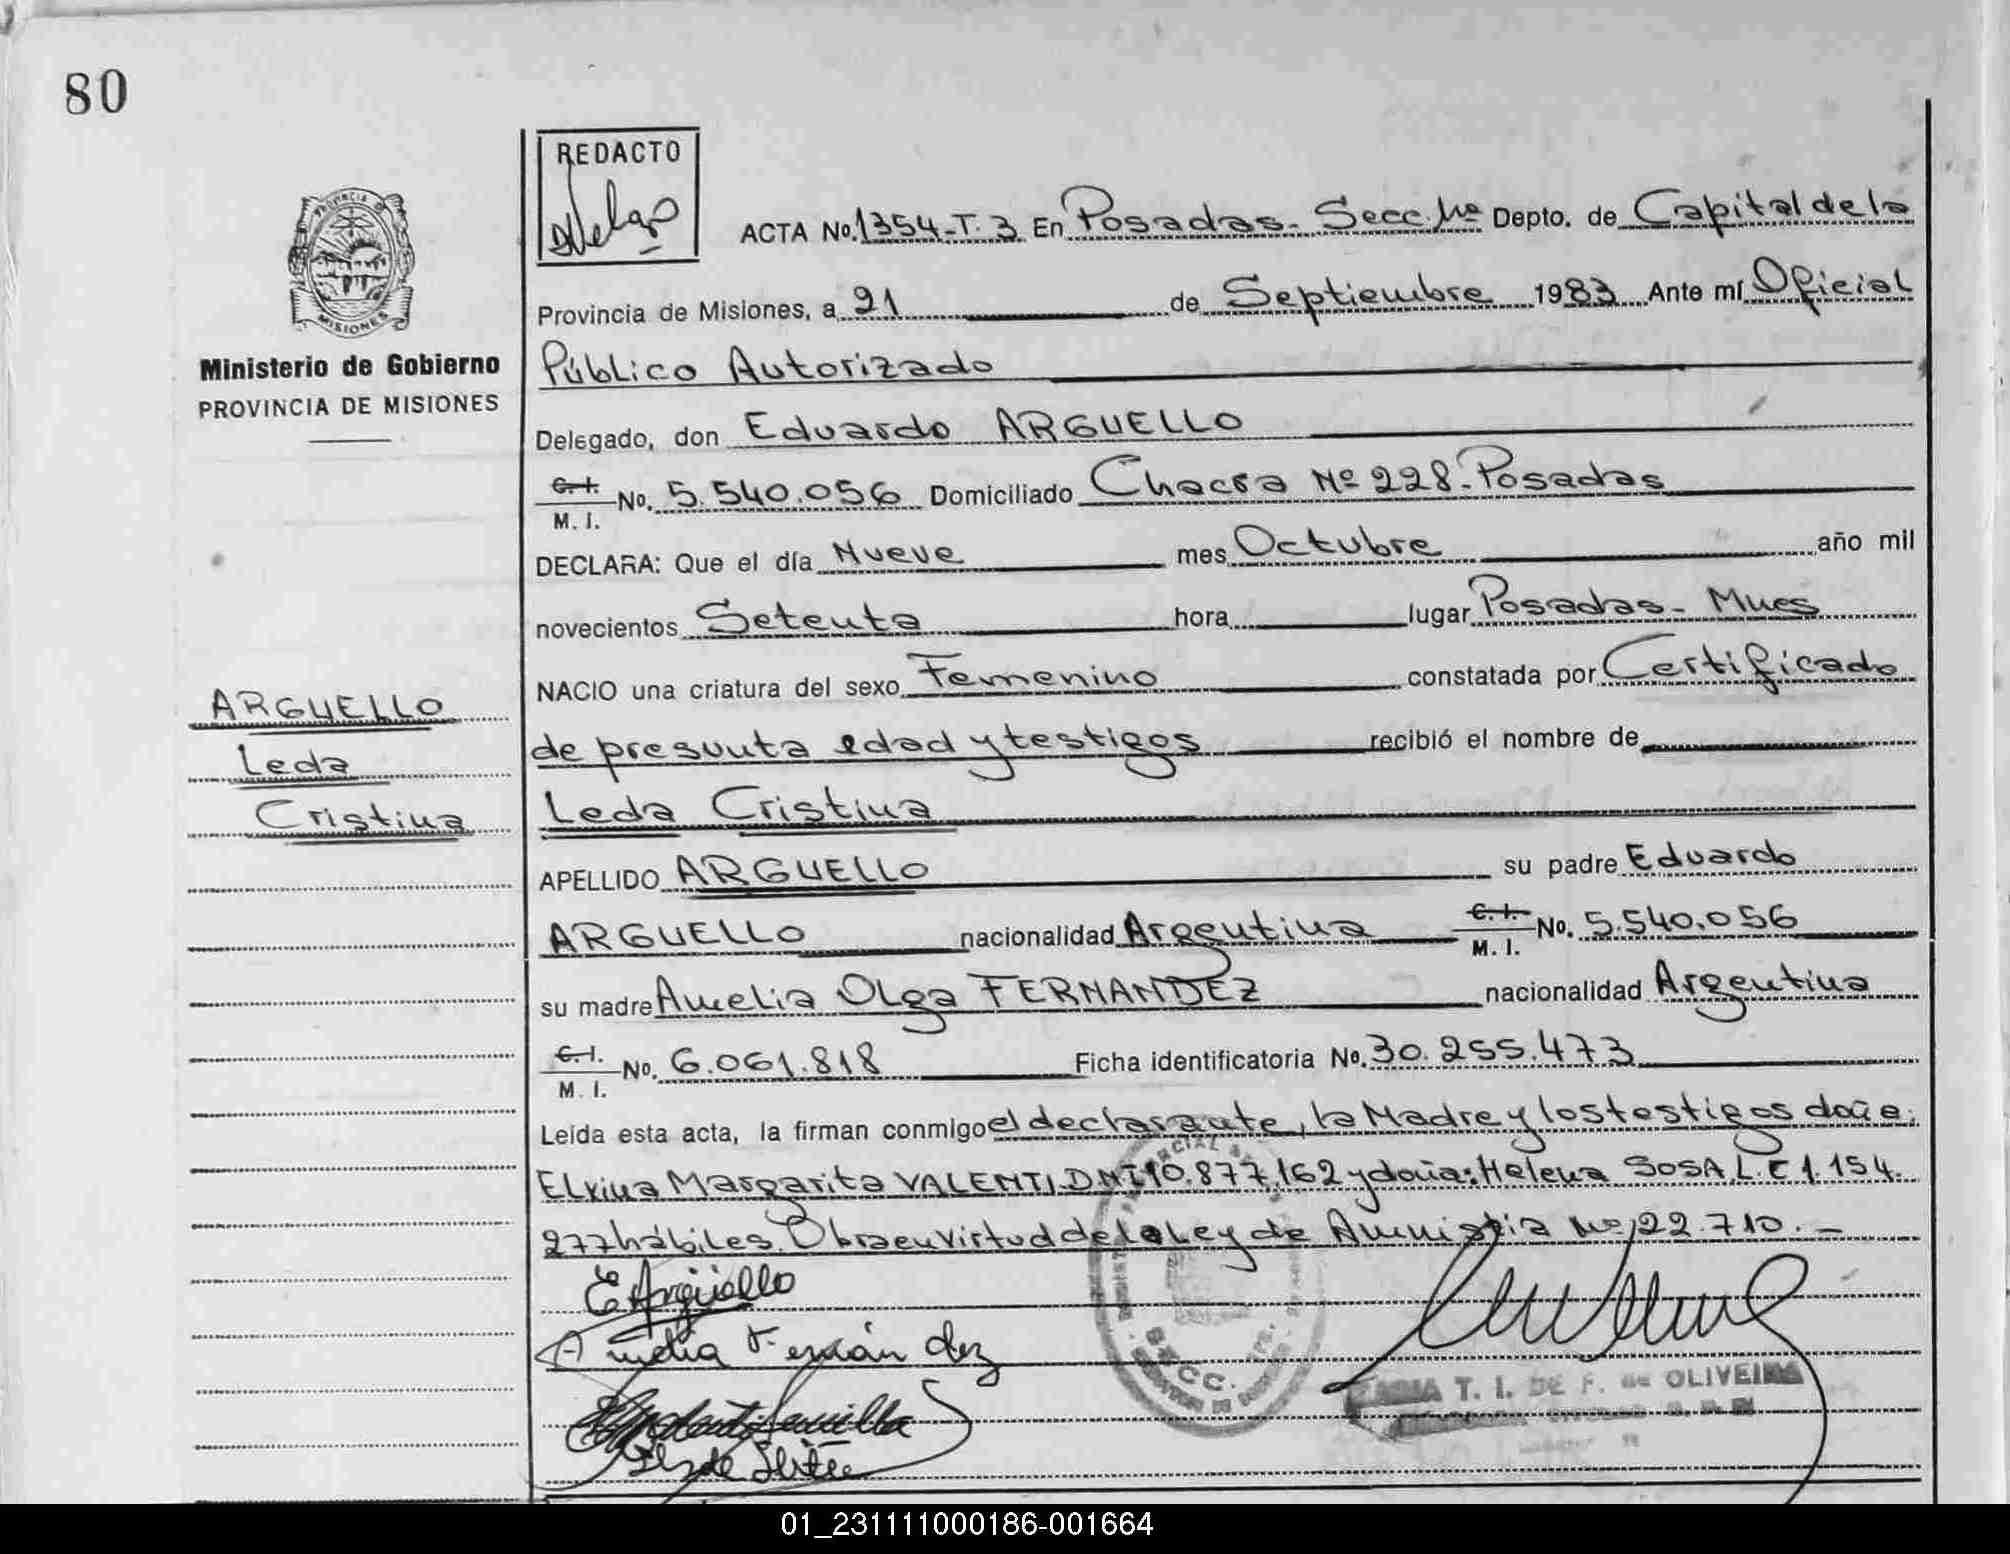 80
REDACTO
ACTA No. 1354-T. 3 En Posadas. Secc. 1ra Depto. de Capital de la
Provincia de Misiones, a 21 de Septiembre 1983 Ante mí Oficial
Ministerio de Gobierno
PROVINCIA DE MISIONES
MISIONES
Público Autorizado
Delegado, don Eduardo ARGUELLO
C. I. M. I. No. 5.540.056 Domiciliado Chacra Nº 228. Posadas
DECLARA: Que el día Nueve mes Octubre año mil
novecientos Setenta hora lugar Posadas - Mnes
NACIO una criatura del sexo Femenino constatada por Certificado
de presunta edad y testigos recibió el nombre de
Leda Cristina
ARGUELLO
Leda
Cristina
APELLIDO ARGUELLO su padre Eduardo
ARGUELLO nacionalidad Argentina C. I. M. I. No. 5.540.056
su madre Amelia Olga FERNANDEZ nacionalidad Argentina
C. I. M. I. No. 6.061.818 Ficha identificatoria No. 30.255.473
Leída esta acta, la firman conmigo el declarante, la Madre y los testigos doña:
Elvina Margarita VALENTI, DNI 10.877.162 y doña: Helena SOSA, L.C 1.154.
277 hábiles. Obra en virtud de la Ley de Amnistia Nº 22.710. -
E Argüello
Amelia Fernández
SECC.
T. I. DE F. de OLIVEIRA
01_231111000186-001664